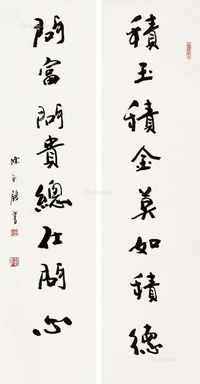 積玉積金莫如積德
問富問貴總在問心